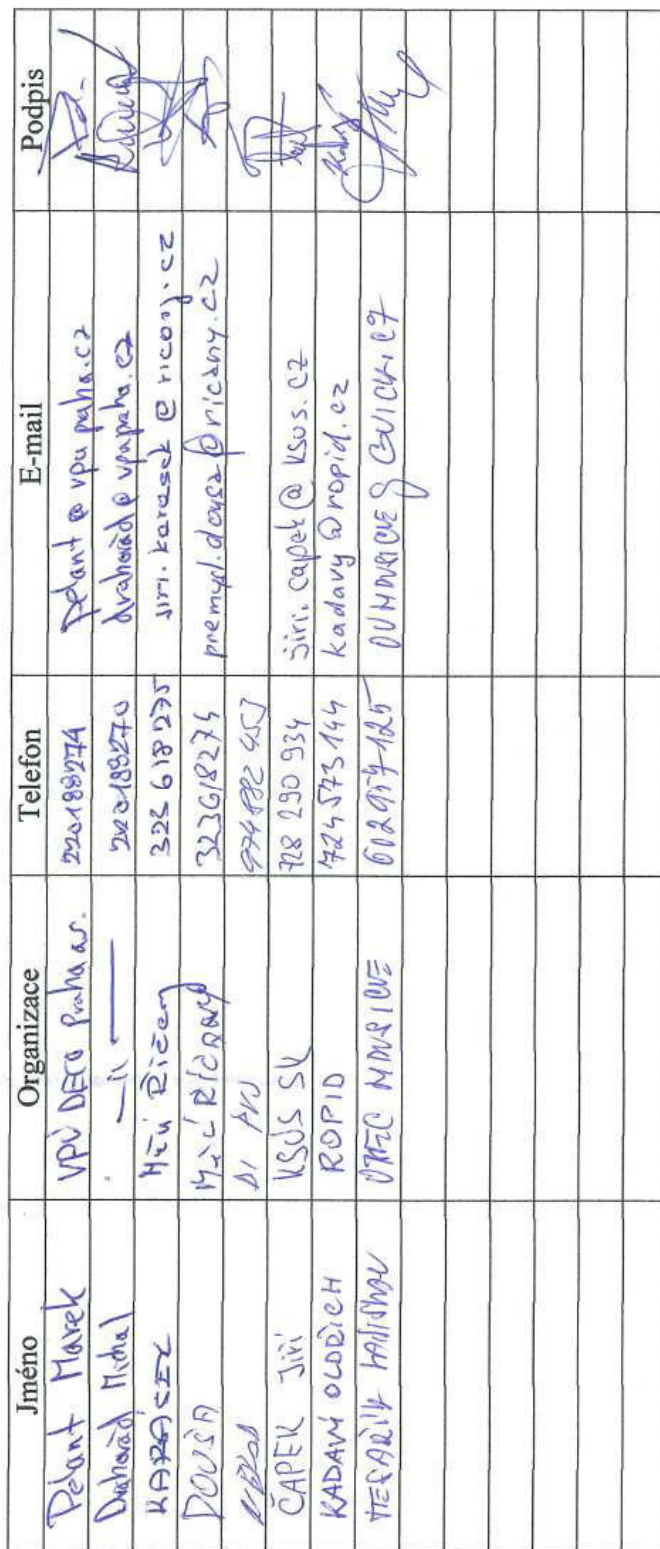 Jméno Organizace Telefon E-mail Podpis
Pelant Marek VPÚ DECO Praha a.s. 220188274 pelant@vpupraha.cz
Drahorád Michal —"— 220188270 drahorad@vpupraha.cz
KARÁSEK MěÚ Říčany 323618275 jiri.karasek@ricany.cz
DOUŠA MěÚ ŘÍČANY 323618274 premysl.dousa@ricany.cz
DI 974882453
ČAPEK Jiří KSÚS SK 728 290 934 jiri.capek@ksus.cz
KADAVÝ OLDŘICH ROPID 724573144 kadavy@ropid.cz
OBEC 602957125